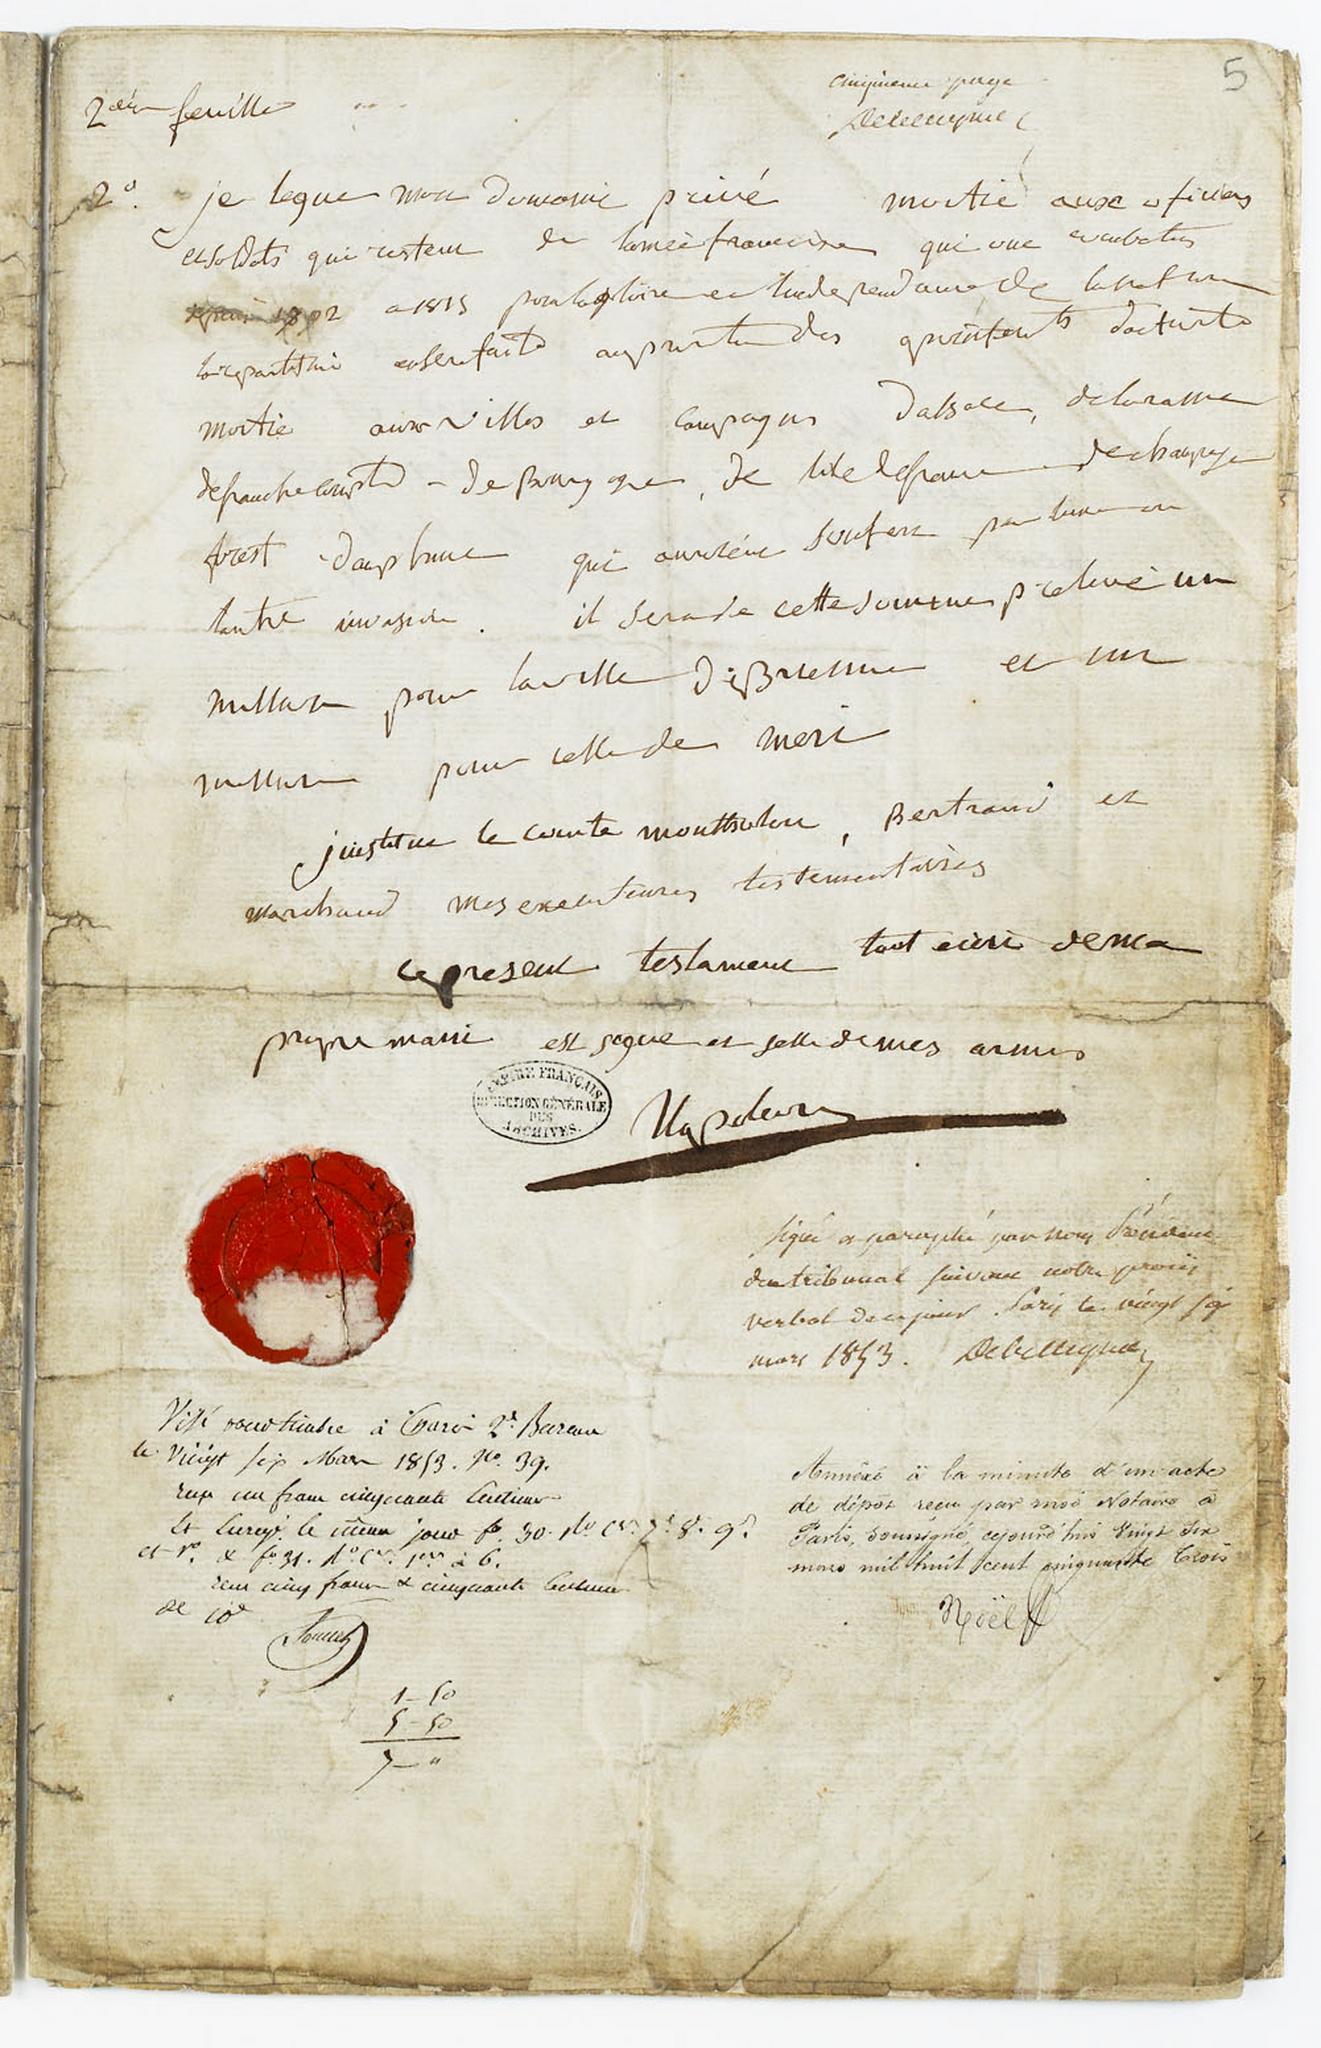 5
cinquieme page
2eme feuille
2°. je legue mon domaine privé moitié aux oficiers
et soldats qui restent de larmée francaise qui ont combatus
depuis 1802 a 1815 pour la gloire et lindependance de la nation
la repartition en sera faite au prorata des apointements dactivité
moitié aux villes et campagnes dalsace, de loraine
de franche compté - de Bourgogne, de lile de france de champagne
forest dauphiné qui auroient soufert par lune ou
lautre invasion. il sera de cette somme prelevé un
million pour la ville de Brienne et un
million pour celle de meri
jinstitue le comte montholon, Bertrand et
marchand mes executeures testementaires
ce present testament tout ecrit de ma
propre main est signé et sellé de mes armes
EMPIRE FRANÇAIS
DIRECTION GÉNÉRALE
DES
ARCHIVES.
Napoleon
Signé et paraphé par nous Président
du tribunal suivant notre procès
verbal de ce jour. Paris le vingt six
mars 1853. Debelleyme
Visé pour timbre à Paris 2e Bureau
le vingt six Mars 1853. No. 39.
reçu un franc cinquante centimes
et enregé le même jour fo 30. Ro Cs. 7. 8. 9.
et Vo. & fo 31. Ro Cs. 1er à 6.
reçu cinq francs & cinquante centimes
de 10e
Annéxé à la minute d'un acte
de dépôt reçu par moi Notaire à
Paris, soussigné, cejourd'hui vingt six
mars mil huit cent cinquante trois
Noël
1-50
5-50
7-"